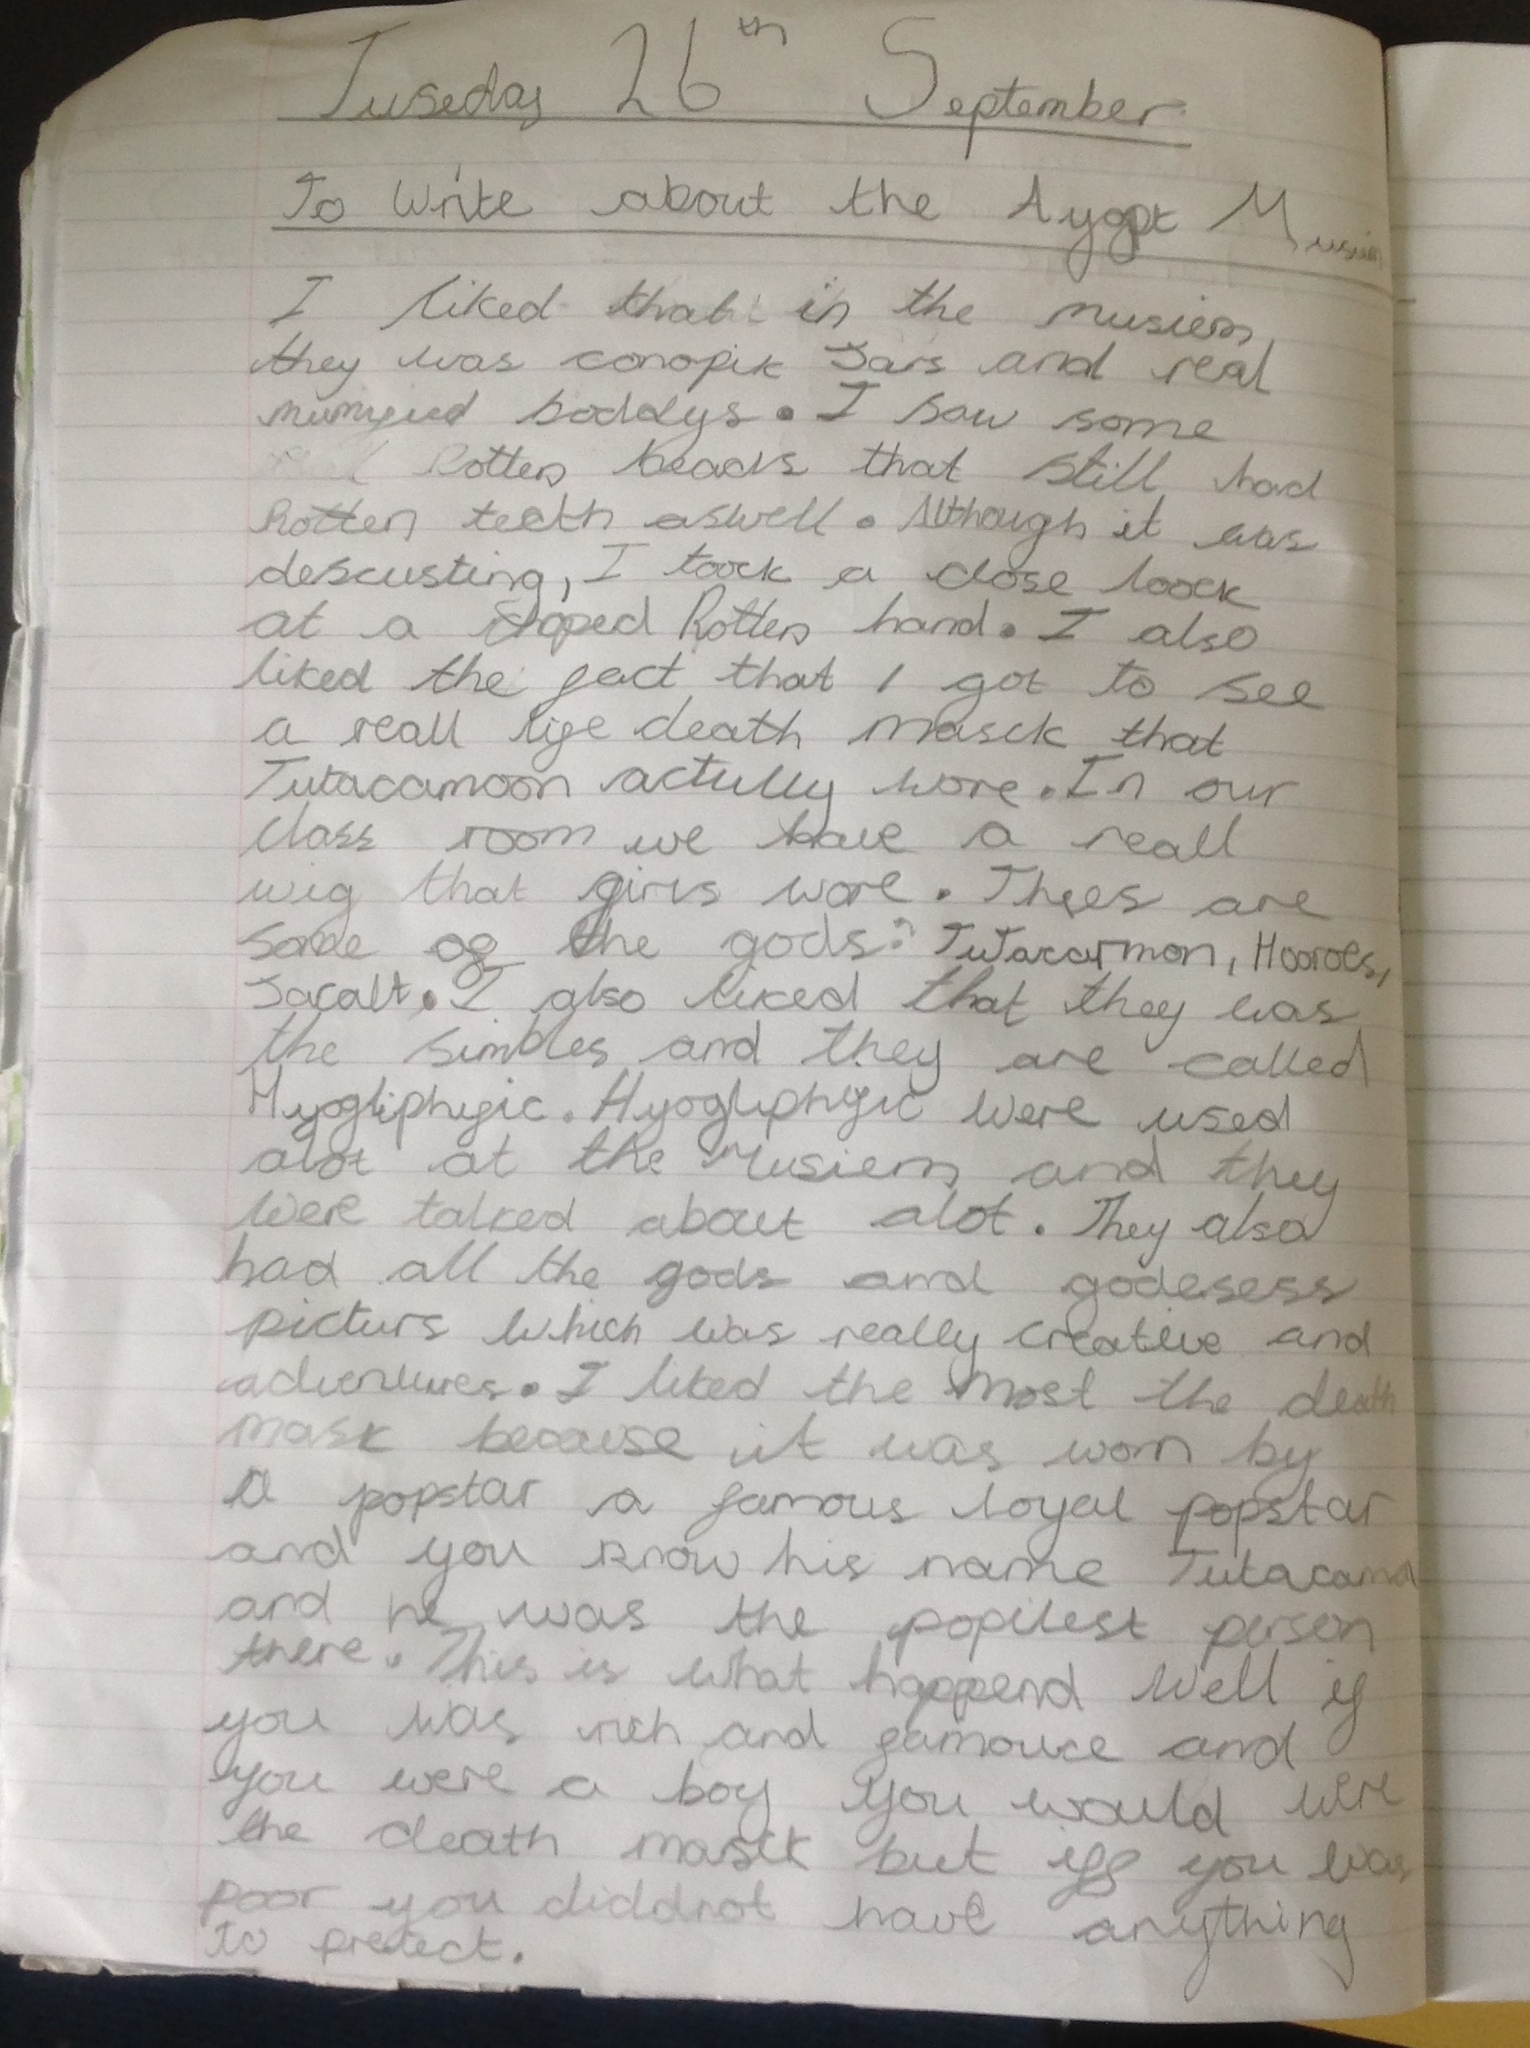 Tuseday 26th September
To Write about the Aygpt Musiem
I liked that in the musiem
they was conopik Jars and real
mumyied boddys. I saw some
Rotten heads that still had
Rotten teeth aswell. Although it was
descusting, I toock a close loock
at a Rotten hand. I also
liked the fact that I got to see
a reall life death masck that
Tutacamoon actully wore. In our
class room we have a reall
wig that girls wore. Thees are
some of the gods: Tutacarmon, Hooroes,
Jacalt. I also liked that they was
the simbles and they are called
Hyogliphyic. Hyogliphyic were used
alot at the Musiem and they
were talked about alot. They also
had all the gods and godesess
picturs which was really creative and
adventures. I liked the most the death
mask because it was worn by
a popstar a famous loyal popstar
and you know his name Tutacamon
and he was the popilest person
there. This is what happend well if
you was rich and famouce and
you were a boy you would were
the death masck but if you was
poor you diddnot have anything
to pretect.